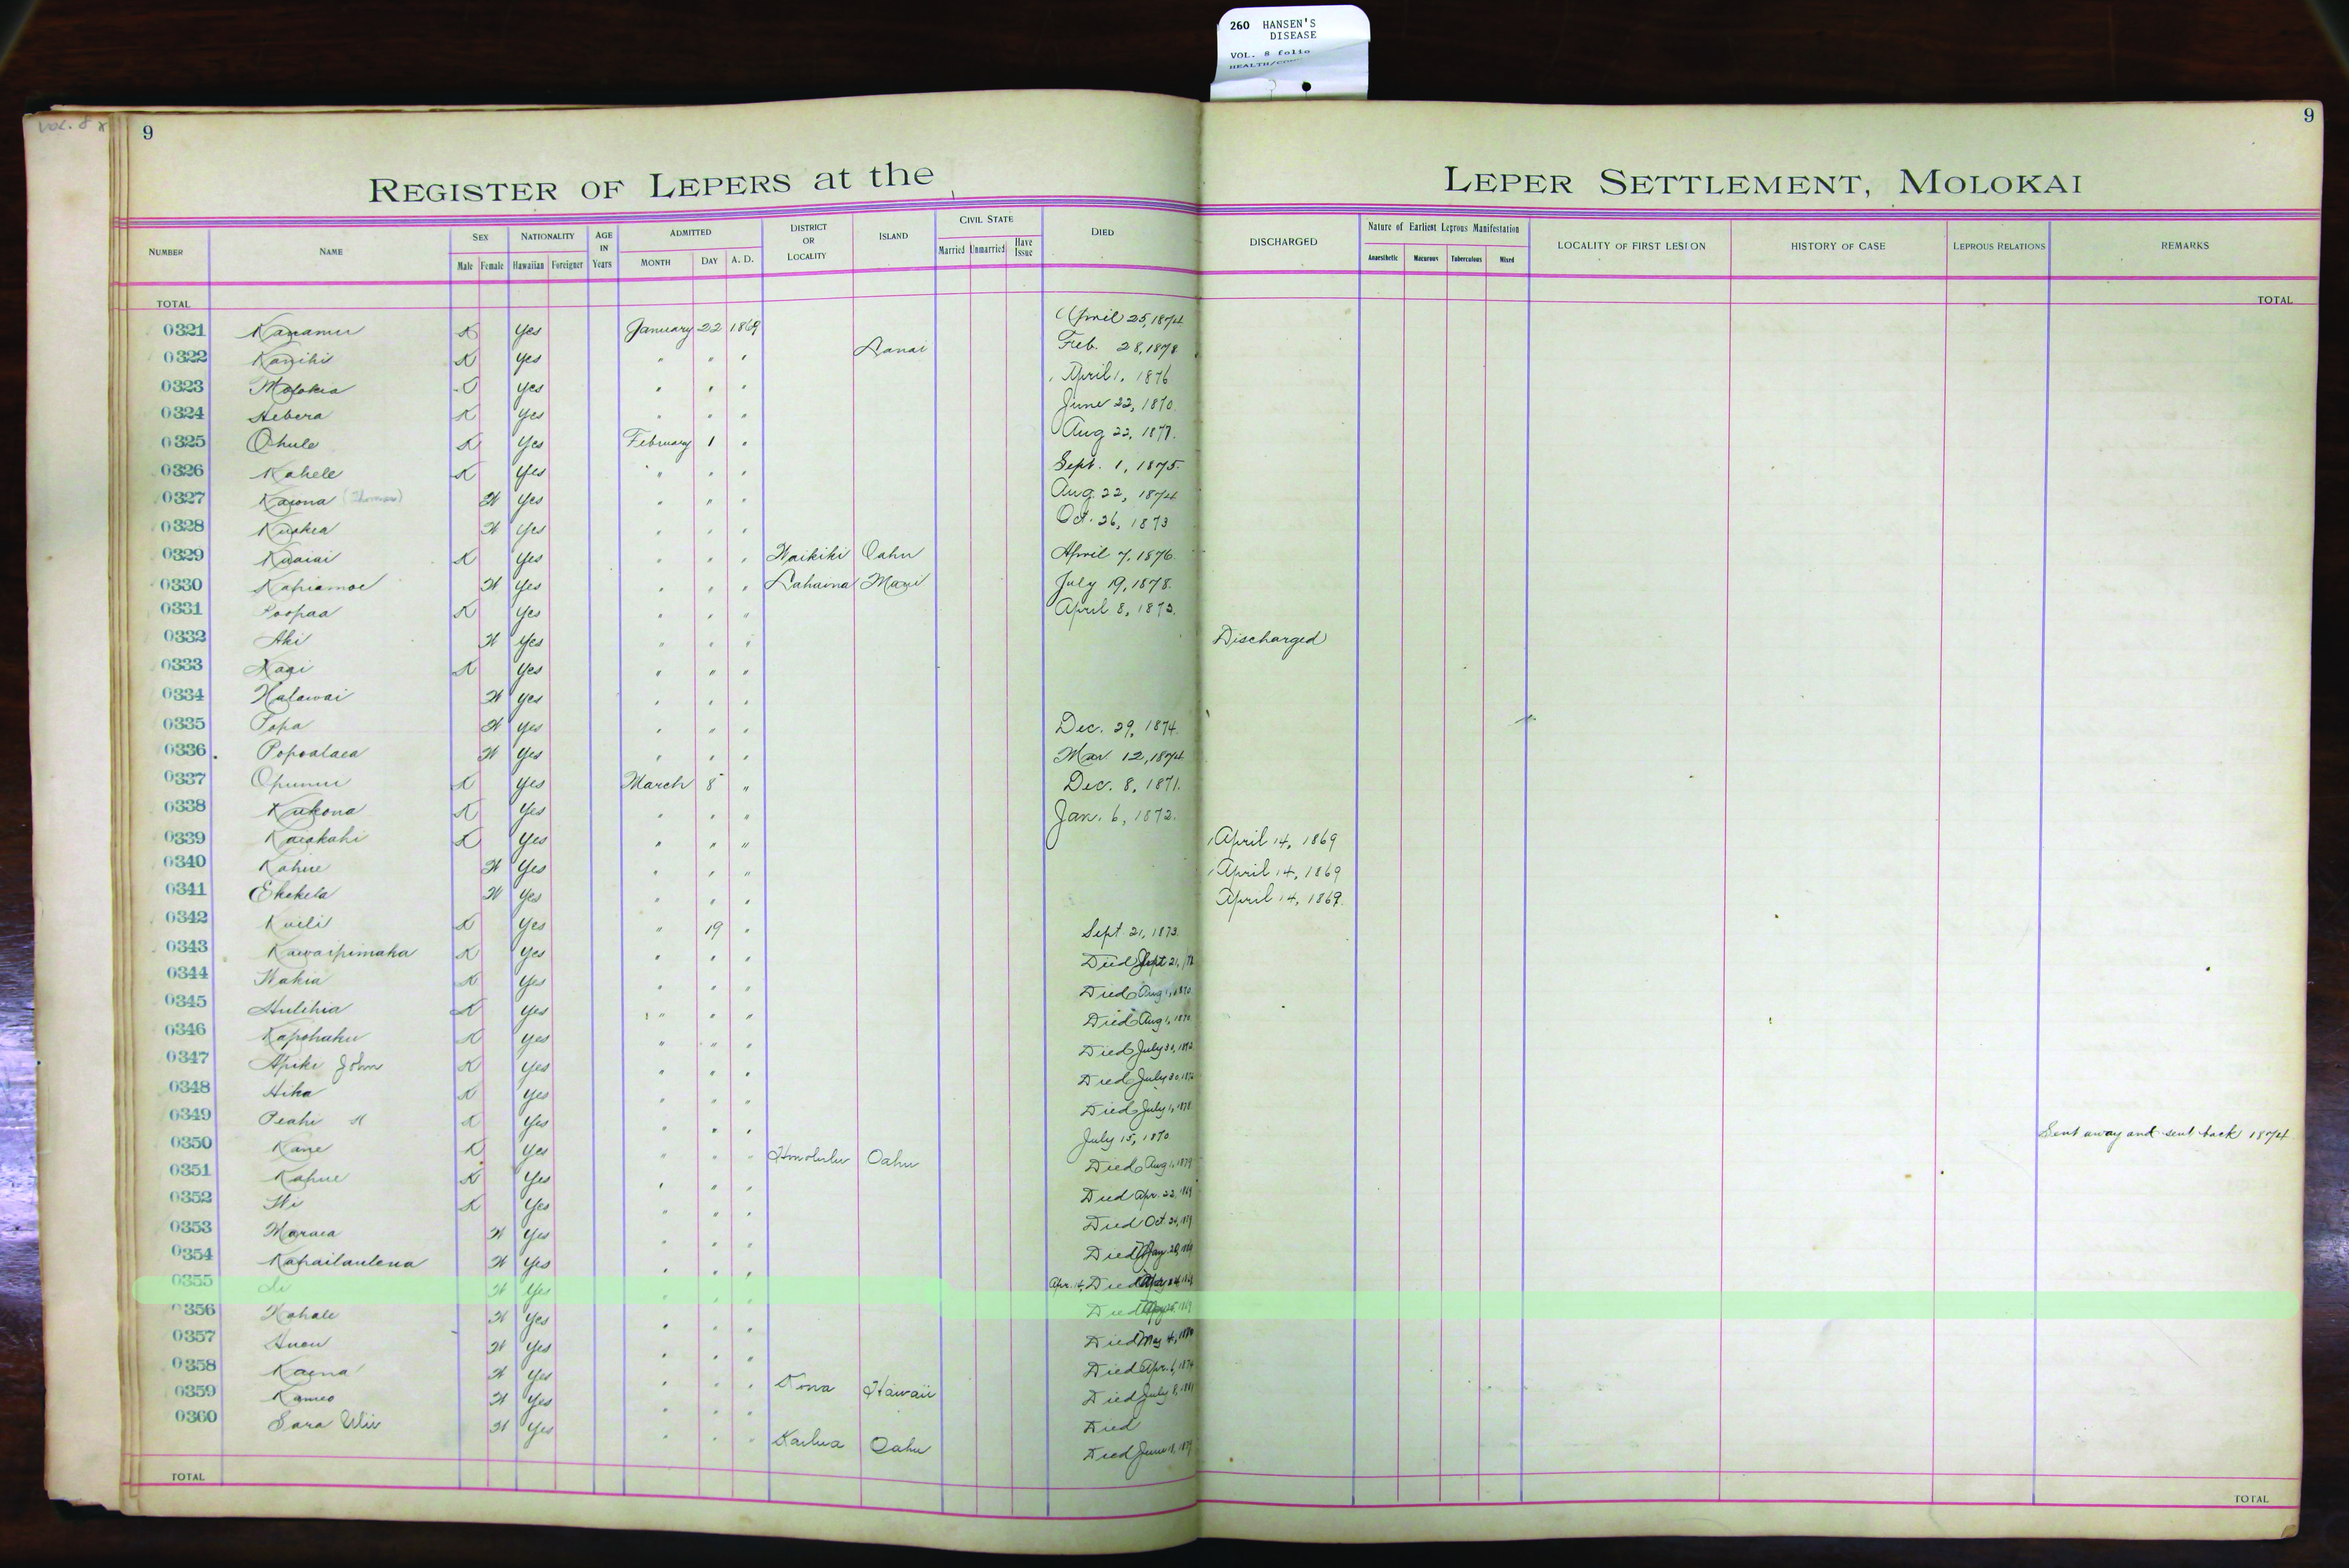 260 HANSEN'S
DISEASE
VOL. 8 folio
VOL. 8
9
9
REGISTER OF LEPERS at the LEPER SETTLEMENT, MOLOKAI
NUMBER NAME SEX Male Female NATIONALITY Hawaiian Foreigner AGE IN Years ADMITTED MONTH DAY A. D. DISTRICT OR LOCALITY ISLAND CIVIL STATE Married Unmarried Have Issue DIED DISCHARGED Nature of Earliest Leprous Manifestation Anaesthetic Macurous Tuberculous Mixed LOCALITY OF FIRST LESION HISTORY OF CASE LEPROUS RELATIONS REMARKS
TOTAL TOTAL
0321 Kanamu K Yes January 22 1869 April 25, 1874
0322 Kanihi K Yes " " " Lanai Feb. 28, 1878
0323 Molokia Yes " " " April 1, 1876
0324 Hebera K Yes " " " June 22, 1870
0325 Ohule K Yes February 1 " Aug 22, 1877.
0326 Kahele K Yes " " " Sept. 1, 1875.
0327 Kaiona (Thomas) W Yes " " " Aug. 22, 1874
0328 W Yes " " " Oct. 26, 1873
0329 Kuaiai K Yes " " " Waikiki Oahu April 7, 1876.
0330 Kahiamoe W Yes " " " Lahaina Maui July 19, 1878.
0331 Poopaa K Yes " " " April 8, 1873.
0332 Aki W Yes " " " Discharged
0333 K Yes " " "
0334 Halawai W Yes " " "
0335 Popa W Yes " " " Dec. 29, 1874.
0336 Popoalaea W Yes " " " Mar 12, 1874
0337 Opunui K Yes March 8 " Dec. 8, 1871.
0338 Kukona K Yes " " " Jan. 6, 1872.
0339 Kaiakahi K Yes " " " April 14, 1869
0340 Kahue W Yes " " " April 14, 1869
0341 Ekekela W Yes " " " April 14, 1869.
0342 Kuili K Yes " 19 " Sept. 21, 1873.
0343 Kawaipimaka K Yes " " " Died Sept 21,
0344 Wakia K Yes " " " Died Aug 1, 1870
0345 Hulihia K Yes " " " Died Aug 1, 1870
0346 Kapohaku K Yes " " " Died July 30,
0347 Apiki John K Yes " " " Died July 30,
0348 Hika K Yes " " " Died July 1, 1878
0349 Peahi K Yes " " " July 15, 1870. Sent away and sent back 1874
0350 Kane K Yes " " " Honolulu Oahu Died Aug 1, 1879
0351 Kahue K Yes " " " Died Apr. 22, 1869
0352 Wi K Yes " " " Died Oct. 24,
0353 Maraea W Yes " " " Died May 20,
0354 Kahailaulena W Yes " " " Apr. 14, Died
0355 W Yes " " " Died
0356 Kahale W Yes " " " Died May 4,
0357 W Yes " " " Died Apr. 6, 1874
0358 Kaena W Yes " " " Kona Hawaii Died July 8, 1881
0359 Kameo W Yes " " " Died
0360 Sara W Yes " " " Kailua Oahu Died June
TOTAL TOTAL